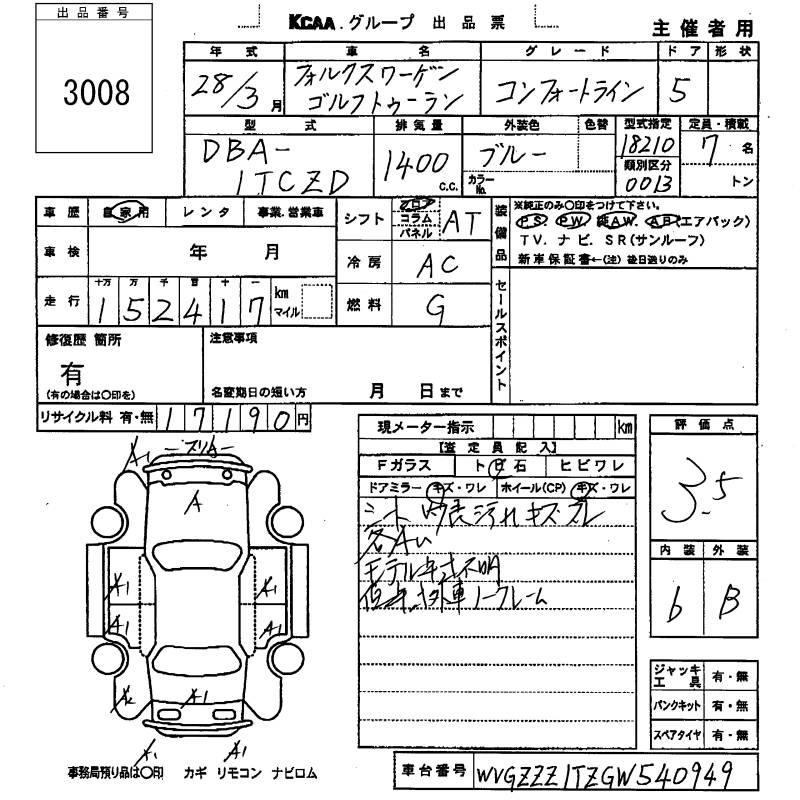 出品番号
3008
KCAA.グループ 出品票
主催者用
年式 車名 グレード ドア 形状
28/3月 フォルクスワーゲン ゴルフトゥーラン コンフォートライン 5
型式 排気量 外装色 色替 型式指定 定員・積載
DBA-1TCZD 1400 C.C. ブルー カラーNo. 18210 7名
類別区分
0013 トン
車歴 自家用 レンタ 事業.営業車 シフト フロア コラム パネル AT
装備品 ※純正のみ○印をつけて下さい。
P.S. P.W. 純AW. A.B.(エアバック)
TV. ナビ. SR(サンルーフ)
新車保証書←(注)後日送りのみ
車検 年 月 冷房 AC
走行 十万 万 千 百 十 一
1 5 2 4 1 7 km マイル 燃料 G
セールスポイント
修復歴 箇所 注意事項
有
(有の場合は○印を) 名変期日の短い方 月 日まで
リサイクル料 有・無 1 7 1 9 0 円
現メーター指示 km
評価点
3.5
【査定員記入】
Fガラス ト日石 ヒビワレ
ドアミラー キズ・ワレ ホイール(CP) キズ・ワレ
シート 汚れ キズ
モデル年式不明
ノークレーム
内装 外装
6 B
A1
A
A1 A1
A1 A1
A2 A1
A1
ジャッキ工具 有・無
パンクキット 有・無
スペアタイヤ 有・無
事務局預り品は○印 カギ リモコン ナビロム
車台番号 WVGZZZ1TZGW540949